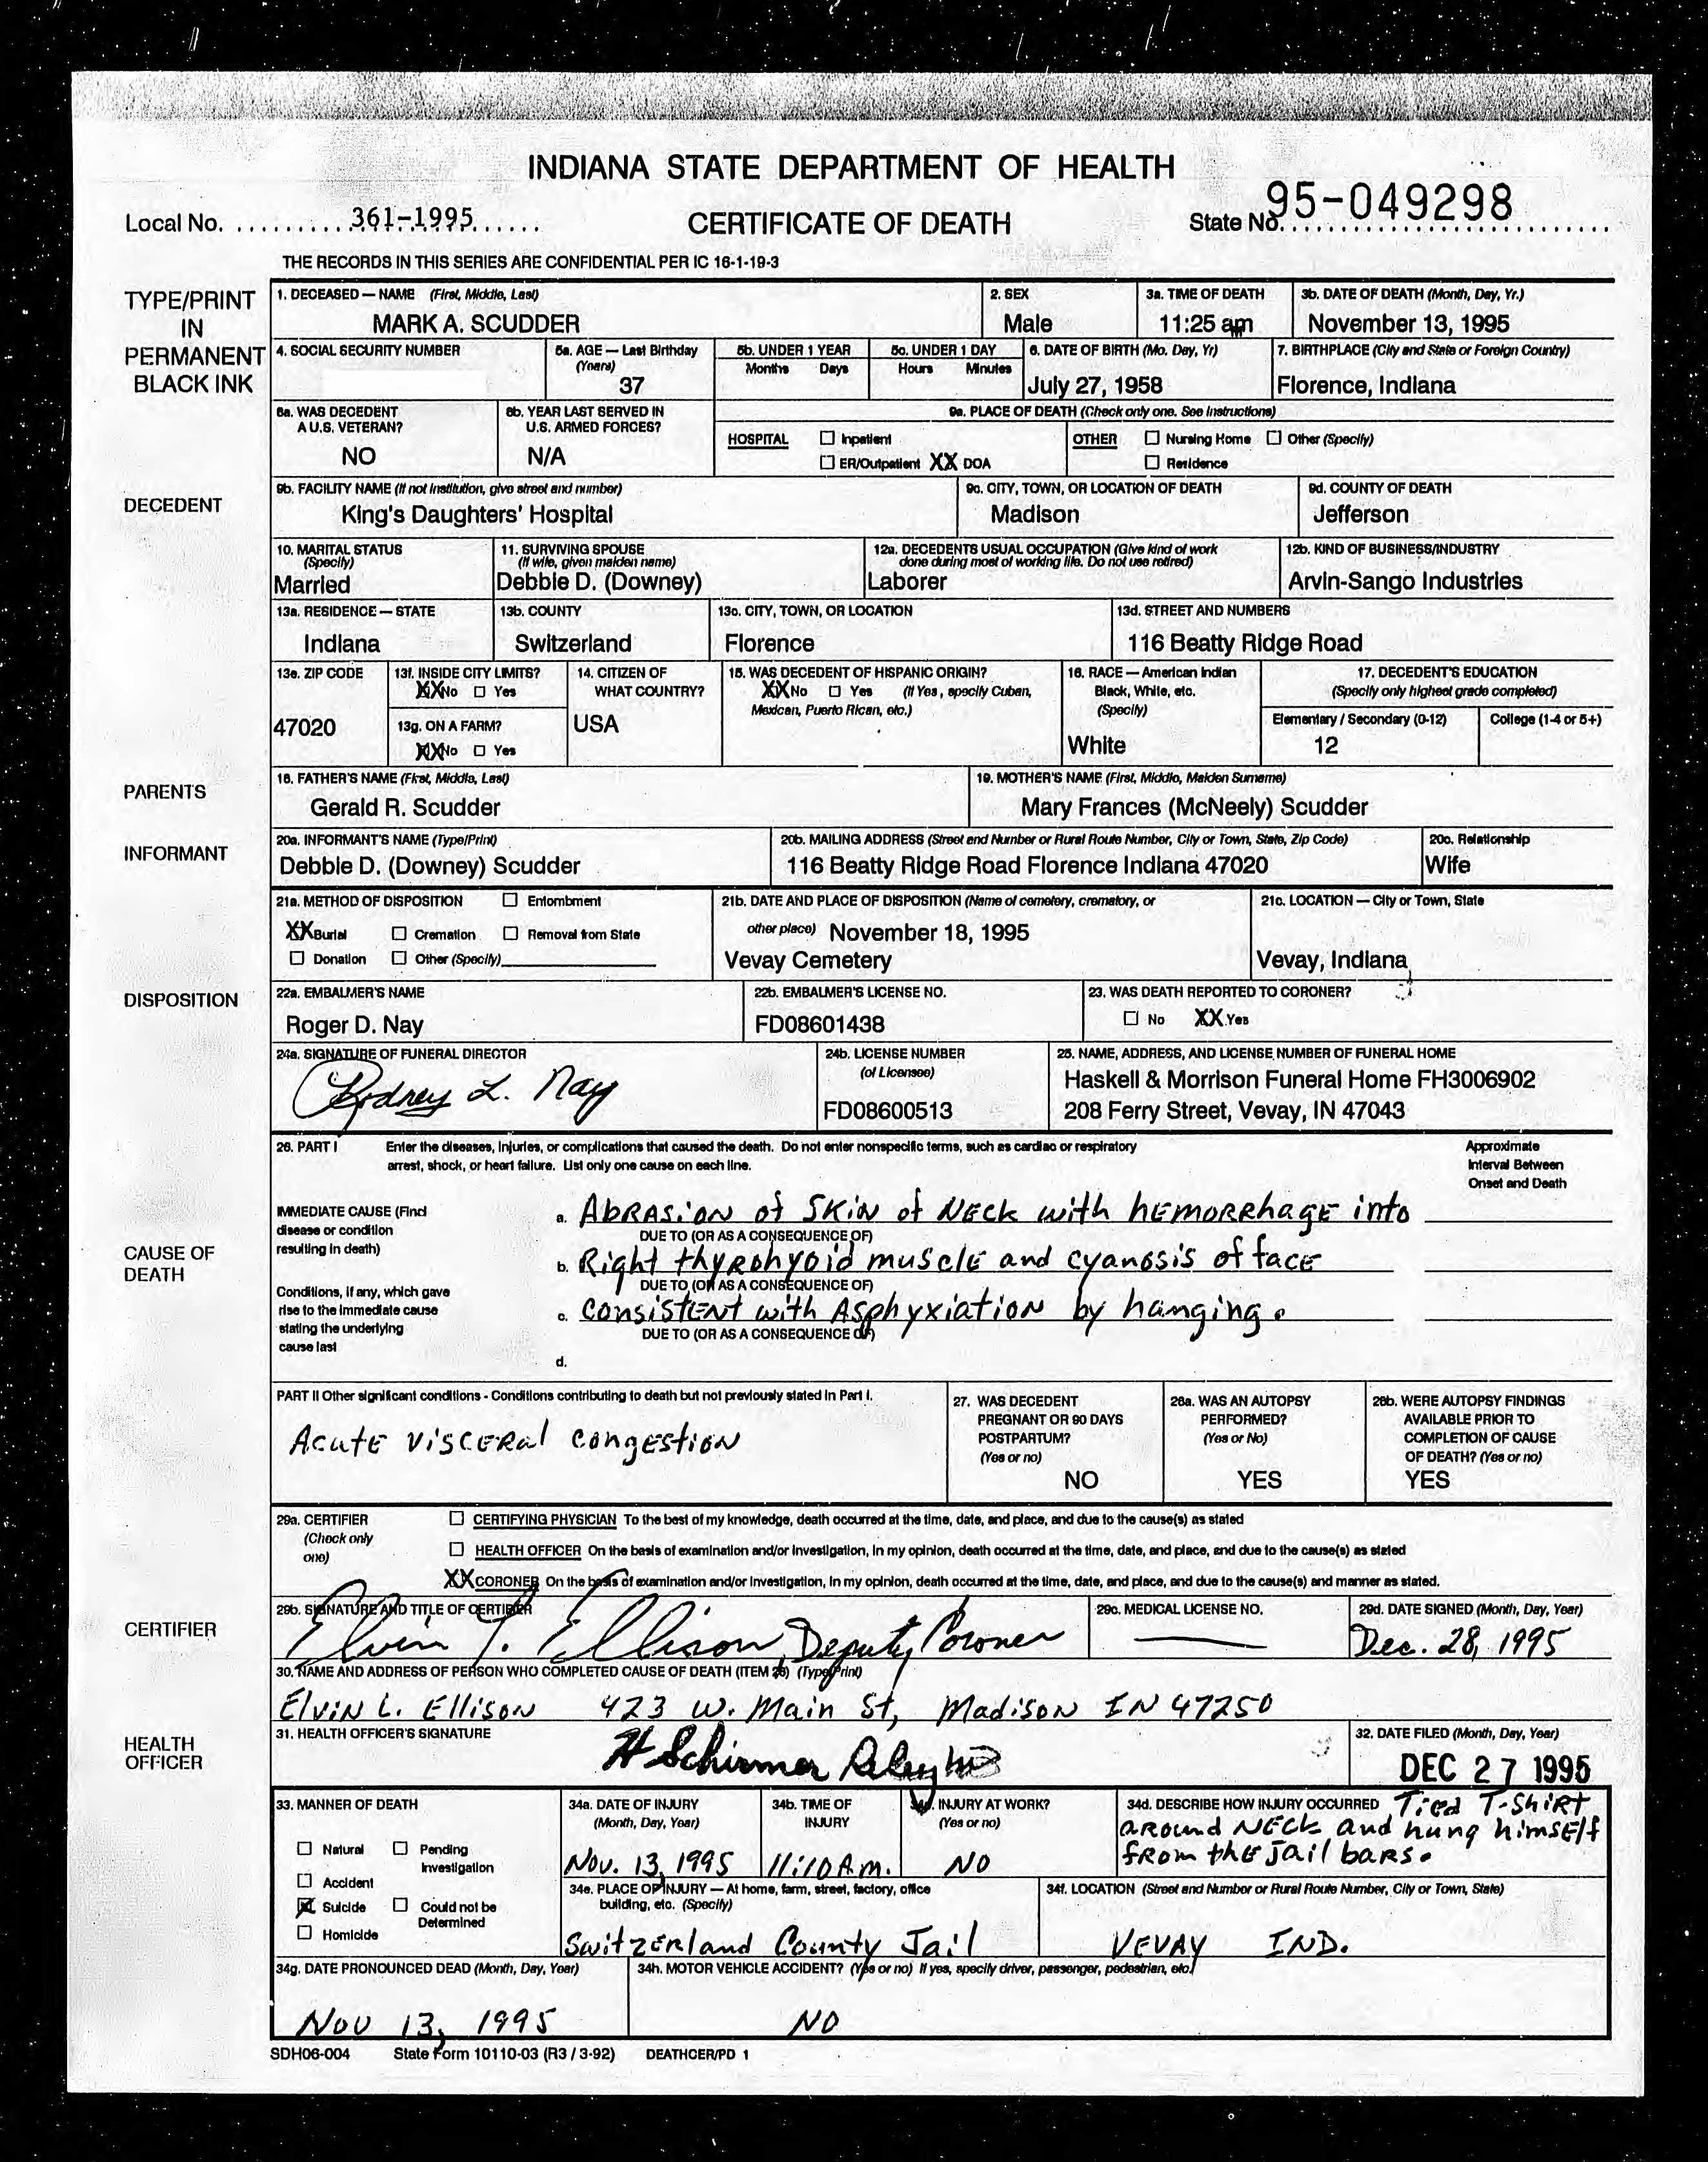 INDIANA STATE DEPARTMENT OF HEALTH
Local No. 361-1995 CERTIFICATE OF DEATH State No. 95-049298
THE RECORDS IN THIS SERIES ARE CONFIDENTIAL PER IC 16-1-19-3
TYPE/PRINT
IN
PERMANENT
BLACK INK
1. DECEASED — NAME (First, Middle, Last) 2. SEX 3a. TIME OF DEATH 3b. DATE OF DEATH (Month, Day, Yr.)
MARK A. SCUDDER Male 11:25 November 13, 1995
4. SOCIAL SECURITY NUMBER 5a. AGE — Last Birthday 5b. UNDER 1 YEAR 5c. UNDER 1 DAY 6. DATE OF BIRTH (Mo. Day, Yr) 7. BIRTHPLACE (City and State or Foreign Country)
(Years) Months Days Hours Minutes
37 July 27, 1958 Florence, Indiana
8a. WAS DECEDENT 8b. YEAR LAST SERVED IN 9a. PLACE OF DEATH (Check only one. See Instructions)
A U.S. VETERAN? U.S. ARMED FORCES?
HOSPITAL Inpatient OTHER Nursing Home Other (Specify)
NO N/A ER/Outpatient XX DOA Residence
DECEDENT
9b. FACILITY NAME (If not institution, give street and number) 9c. CITY, TOWN, OR LOCATION OF DEATH 9d. COUNTY OF DEATH
King's Daughters' Hospital Madison Jefferson
10. MARITAL STATUS 11. SURVIVING SPOUSE 12a. DECEDENTS USUAL OCCUPATION (Give kind of work 12b. KIND OF BUSINESS/INDUSTRY
(Specify) (If wife, given maiden name) done during most of working life. Do not use retired)
Married Debbie D. (Downey) Laborer Arvin-Sango Industries
13a. RESIDENCE — STATE 13b. COUNTY 13c. CITY, TOWN, OR LOCATION 13d. STREET AND NUMBERS
Indiana Switzerland Florence 116 Beatty Ridge Road
13e. ZIP CODE 13f. INSIDE CITY LIMITS? 14. CITIZEN OF 15. WAS DECEDENT OF HISPANIC ORIGIN? 16. RACE — American Indian 17. DECEDENT'S EDUCATION
XX No Yes WHAT COUNTRY? XX No Yes (If Yes, specify Cuban, Black, White, etc. (Specify only highest grade completed)
Mexican, Puerto Rican, etc.) (Specify)
47020 13g. ON A FARM? USA Elementary / Secondary (0-12) College (1-4 or 5+)
XX No Yes White 12
PARENTS
18. FATHER'S NAME (First, Middle, Last) 19. MOTHER'S NAME (First, Middle, Maiden Surname)
Gerald R. Scudder Mary Frances (McNeely) Scudder
INFORMANT
20a. INFORMANT'S NAME (Type/Print) 20b. MAILING ADDRESS (Street and Number or Rural Route Number, City or Town, State, Zip Code) 20c. Relationship
Debbie D. (Downey) Scudder 116 Beatty Ridge Road Florence Indiana 47020 Wife
21a. METHOD OF DISPOSITION Entombment 21b. DATE AND PLACE OF DISPOSITION (Name of cemetery, crematory, or 21c. LOCATION — City or Town, State
XX Burial Cremation Removal from State other place) November 18, 1995
Donation Other (Specify) Vevay Cemetery Vevay, Indiana
DISPOSITION
22a. EMBALMER'S NAME 22b. EMBALMER'S LICENSE NO. 23. WAS DEATH REPORTED TO CORONER?
Roger D. Nay FD08601438 No XX Yes
24a. SIGNATURE OF FUNERAL DIRECTOR 24b. LICENSE NUMBER 25. NAME, ADDRESS, AND LICENSE NUMBER OF FUNERAL HOME
(of Licensee)
Rodney L. Nay FD08600513 Haskell & Morrison Funeral Home FH3006902
208 Ferry Street, Vevay, IN 47043
26. PART I Enter the diseases, injuries, or complications that caused the death. Do not enter nonspecific terms, such as cardiac or respiratory
arrest, shock, or heart failure. List only one cause on each line.
Approximate
Interval Between
Onset and Death
CAUSE OF
DEATH
IMMEDIATE CAUSE (Final
disease or condition
resulting in death)
Conditions, if any, which gave
rise to the immediate cause
stating the underlying
cause last
a. Abrasion of skin of neck with hemorrhage into
DUE TO (OR AS A CONSEQUENCE OF)
b. Right thyrohyoid muscle and cyanosis of face
DUE TO (OR AS A CONSEQUENCE OF)
c. consistent with Asphyxiation by hanging.
DUE TO (OR AS A CONSEQUENCE OF)
d.
PART II Other significant conditions - Conditions contributing to death but not previously stated in Part I.
Acute visceral congestion
27. WAS DECEDENT
PREGNANT OR 90 DAYS
POSTPARTUM?
(Yes or no)
NO
28a. WAS AN AUTOPSY
PERFORMED?
(Yes or No)
YES
28b. WERE AUTOPSY FINDINGS
AVAILABLE PRIOR TO
COMPLETION OF CAUSE
OF DEATH? (Yes or no)
YES
29a. CERTIFIER
(Check only
one)
CERTIFYING PHYSICIAN To the best of my knowledge, death occurred at the time, date, and place, and due to the cause(s) as stated
HEALTH OFFICER On the basis of examination and/or investigation, in my opinion, death occurred at the time, date, and place, and due to the cause(s) as stated
XX CORONER On the basis of examination and/or investigation, in my opinion, death occurred at the time, date, and place, and due to the cause(s) and manner as stated.
CERTIFIER
29b. SIGNATURE AND TITLE OF CERTIFIER 29c. MEDICAL LICENSE NO. 29d. DATE SIGNED (Month, Day, Year)
Elvin L. Ellison, Deputy Coroner Dec. 28, 1995
30. NAME AND ADDRESS OF PERSON WHO COMPLETED CAUSE OF DEATH (ITEM 26) (Type/Print)
Elvin L. Ellison 423 W. Main St, Madison IN 47250
HEALTH
OFFICER
31. HEALTH OFFICER'S SIGNATURE 32. DATE FILED (Month, Day, Year)
H Schirmer DEC 27 1995
33. MANNER OF DEATH
Natural Pending
Investigation
Accident
Suicide Could not be
Determined
Homicide
34a. DATE OF INJURY
(Month, Day, Year)
Nov. 13, 1995
34b. TIME OF
INJURY
11:10 A.m.
34c. INJURY AT WORK?
(Yes or no)
NO
34d. DESCRIBE HOW INJURY OCCURRED Tied T-Shirt
around neck and hung himself
from the jail bars.
34e. PLACE OF INJURY — At home, farm, street, factory, office
building, etc. (Specify)
Switzerland County Jail
34f. LOCATION (Street and Number or Rural Route Number, City or Town, State)
VEVAY IND.
34g. DATE PRONOUNCED DEAD (Month, Day, Year) 34h. MOTOR VEHICLE ACCIDENT? (Yes or no) If yes, specify driver, passenger, pedestrian, etc.
Nov 13, 1995 NO
SDH06-004 State Form 10110-03 (R3 / 3-92) DEATHCER/PD 1